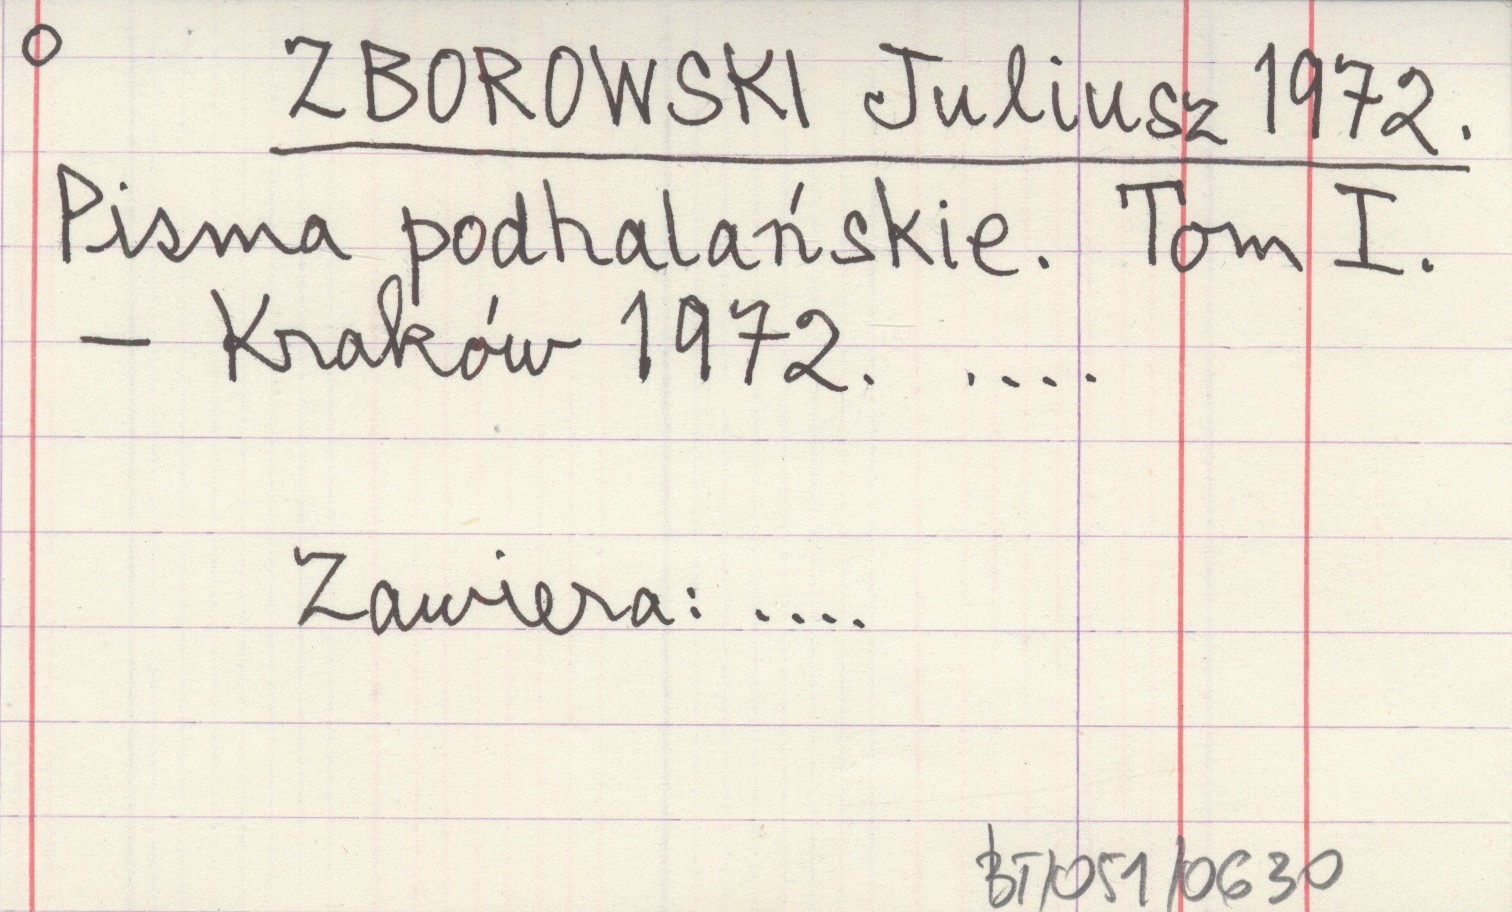 ZBOROWSKI Juliusz 1972.
Pisma podhalańskie. Tom I.
— Kraków 1972. ....
Zawiera: ....
BT/051/0630